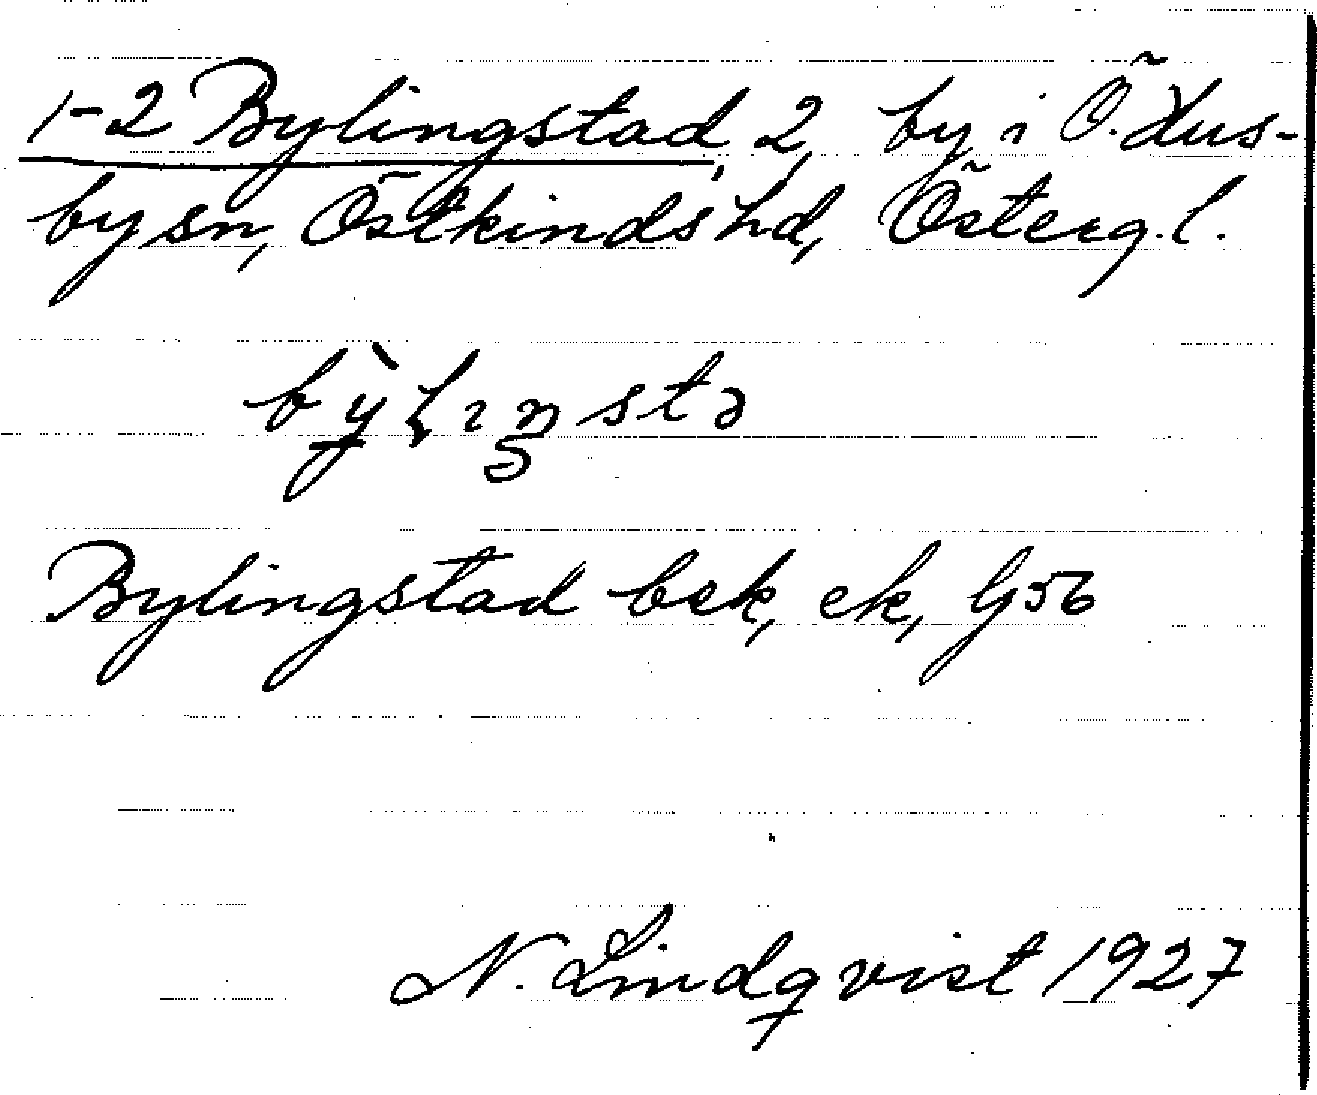 1-2 Bylingstad, 2, by i Ö. Hus-
by sn, Östkinds hd, Österg. l.
bỳlıŋstə
Bylingstad bek, ek, G56
N. Lindqvist 1927